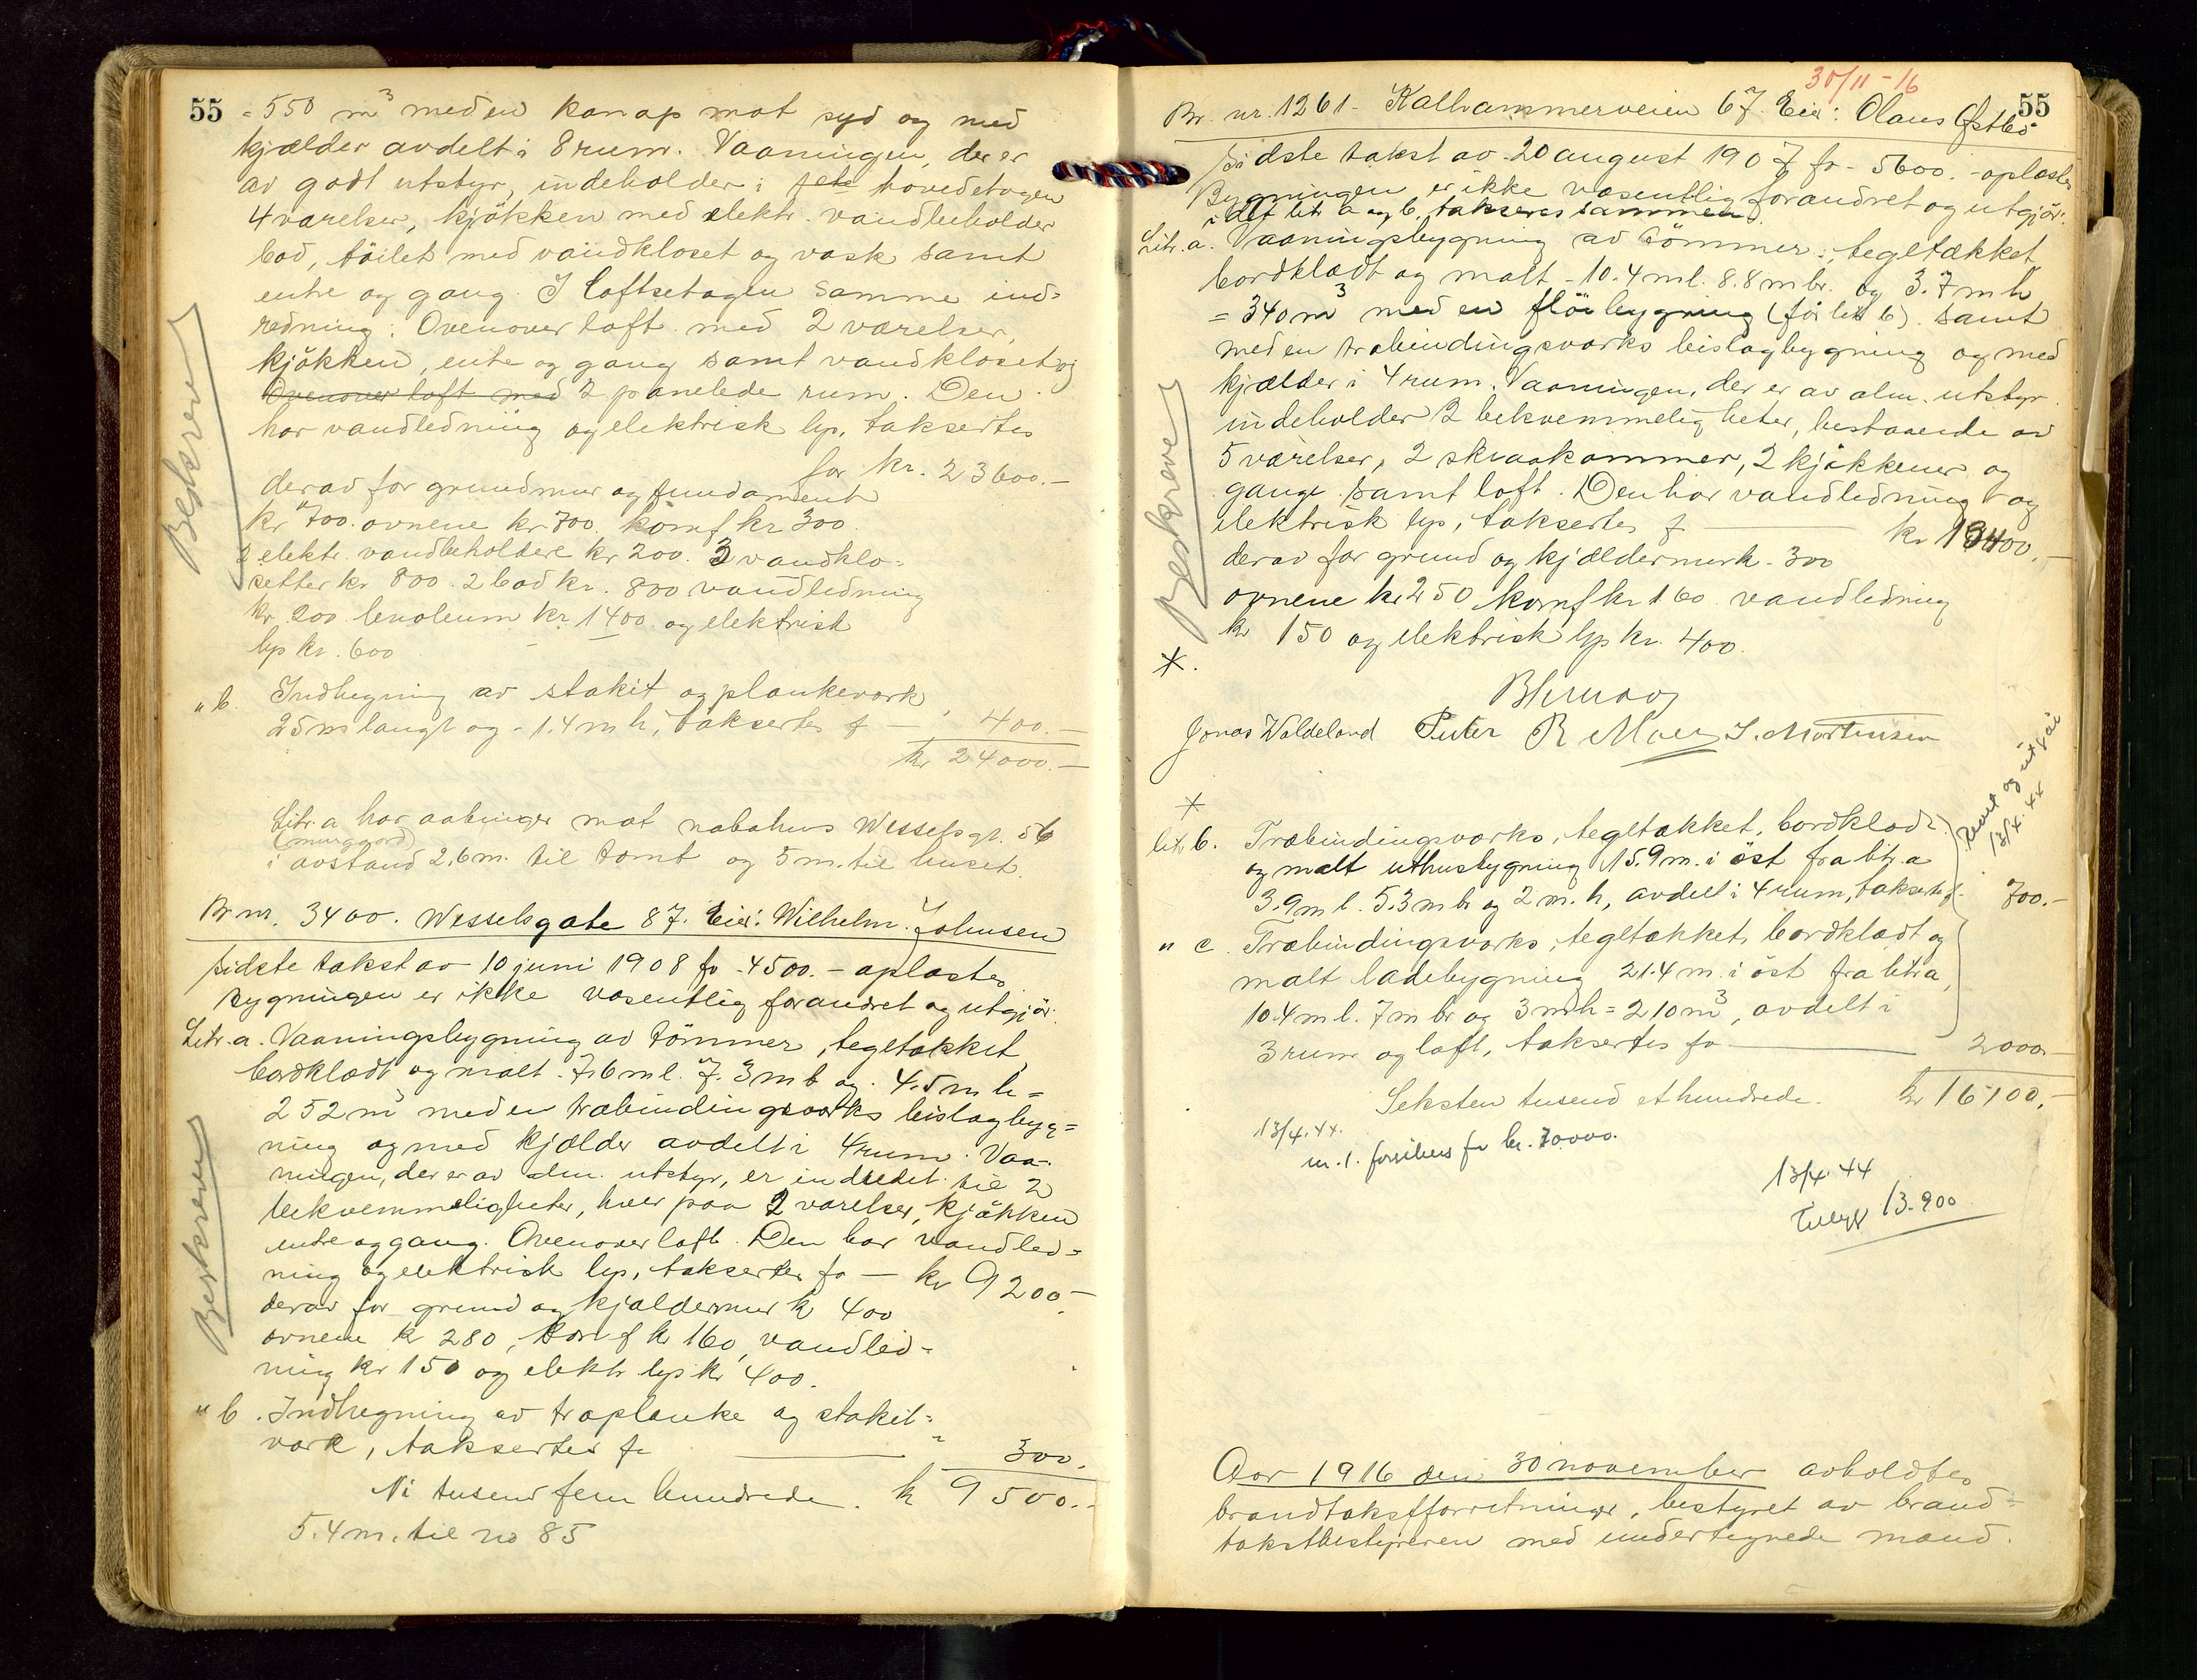 55
= 550 m³ med en karnap mot syd og med
kjælder avdelt i 8 rum. Vaaningen, der er
av godt utstyr, indeholder i hovedetagen
4 værelser, kjökken med elektr. vandbeholder
bad, töilet med vandkloset og vask samt
entre og gang. I loftsetagen samme ind=
redning. Ovenover loft med 2 værelser,
kjökken, entre og gang samt vandkloset og
Ovenover loft med 2 panelede rum. Den
har vandledning og elektrisk lys, taksertes
for kr. 23600.-
derav for grundmur og fundament
kr 700. ovnene kr 700. komf kr 300.
2 elektr. vandbeholdere kr 200. 3 vandklo=
setter kr 800. 2 bad kr. 800 vandledning
kr 200 linoleum kr 1400 og elektrisk
lys kr. 600
Beskreven
" b. Indhegning av stakit og plankeverk
25 m langt og - 1.4 m h, taksertes f — " 400.-
kr 24000.-
Litr. a har aabninger mot nabohus Wesselsgt. 56
(murgaard)
i avstand 2,6 m. til tomt og 5 m. til huset.
Br nr. 3400. Wesselsgate 87. Eier: Wilhelm Johnsen
Sidste takst av 10 juni 1908 fr - 4500.- oplæstes
Bygningen er ikke væsentlig forandret og utgjör:
Litr. a. Vaaningsbygning av tömmer, tegltækket,
bordklædt og malt - 7.6 m l. 7.3 m b og 4.5 m h =
252 m³ med en træbindingsverks bislagbyg=
ning og med kjælder avdelt i 4 rum. Vaa=
ningen, der er av alm. utstyr, er indredet til 2
bekvemmeligheter, hver paa 2 værelser, kjökken
entre og gang. Ovenover loft. Den har vandled=
ning og elektrisk lys, taksertes fo — kr 9200.-
derav for grund og kjældermur k 400
ovnene k 280, komf k 160, vandled=
ning kr 150 og elektr lys kr 400.
Beskreven
" b. Indhegning av træplanke og stakit=
værk, taksertes fr — " 300.
Ni tusend fem hundrede. k 9500.-
5.4 m. til no 85
30/11-16
55
Br. nr. 1261 - Kalhammerveien 67 Eier: Olaus Østbö
Sidste takst av 20 august 1907 fr - 5600.- oplæstes
Bygningen er ikke væsentlig forandret og utgjör:
idet litr a og b, takseres sammen
Litr. a. Vaaningsbygning av tömmer, tegltækket,
bordklædt og malt - 10.4 m l. 8.8 m br. og 3.7 m h
= 340 m³ med en flöibygning (för litr b) samt
med en træbindingsverks bislagbygning og med
kjælder i 4 rum. Vaaningen, der er av alm. utstyr
indeholder 2 bekvemmeligheter, bestaaende av
5 værelser, 2 skraakammer, 2 kjökkener og
gange samt loft. Den har vandledning og
elektrisk lys, taksertes f — kr 13400.-
derav for grund og kjældermur k - 300
ovnene kr 250 komf kr 160 vandledning
kr 150 og elektrisk lys kr. 400.
Beskreven
*.
Jonas Waldeland Peter R Moe J. Mortensen
*
lit. b. Træbindingsværks, tegltækket, bordklædt
og malt uthusbygning 15.9 m. i öst fra litr. a
3.9 m l. 5.3 m br og 2 m. h, avdelt i 4 rum, taksertes f. 700.-
" c. Træbindingsværks, tegltækket, bordklædt og
malt ladebygning 21.4 m. i öst fra litr a,
10.4 m l. 7 m br og 3 m h = 210 m³, avdelt i
3 rum og loft, taksertes fo — 2000.-
og utgår
13/4.44
Seksten tusend et hundrede. kr 16100.-
13/4.44.
m.1. forsikres for kr. 30000.
13/4 44
Tillegg 13.900
Aar 1916 den 30 november avholdtes
brandtakstforretninger, bestyret av brand=
takstbestyreren med undertegnede mænd.